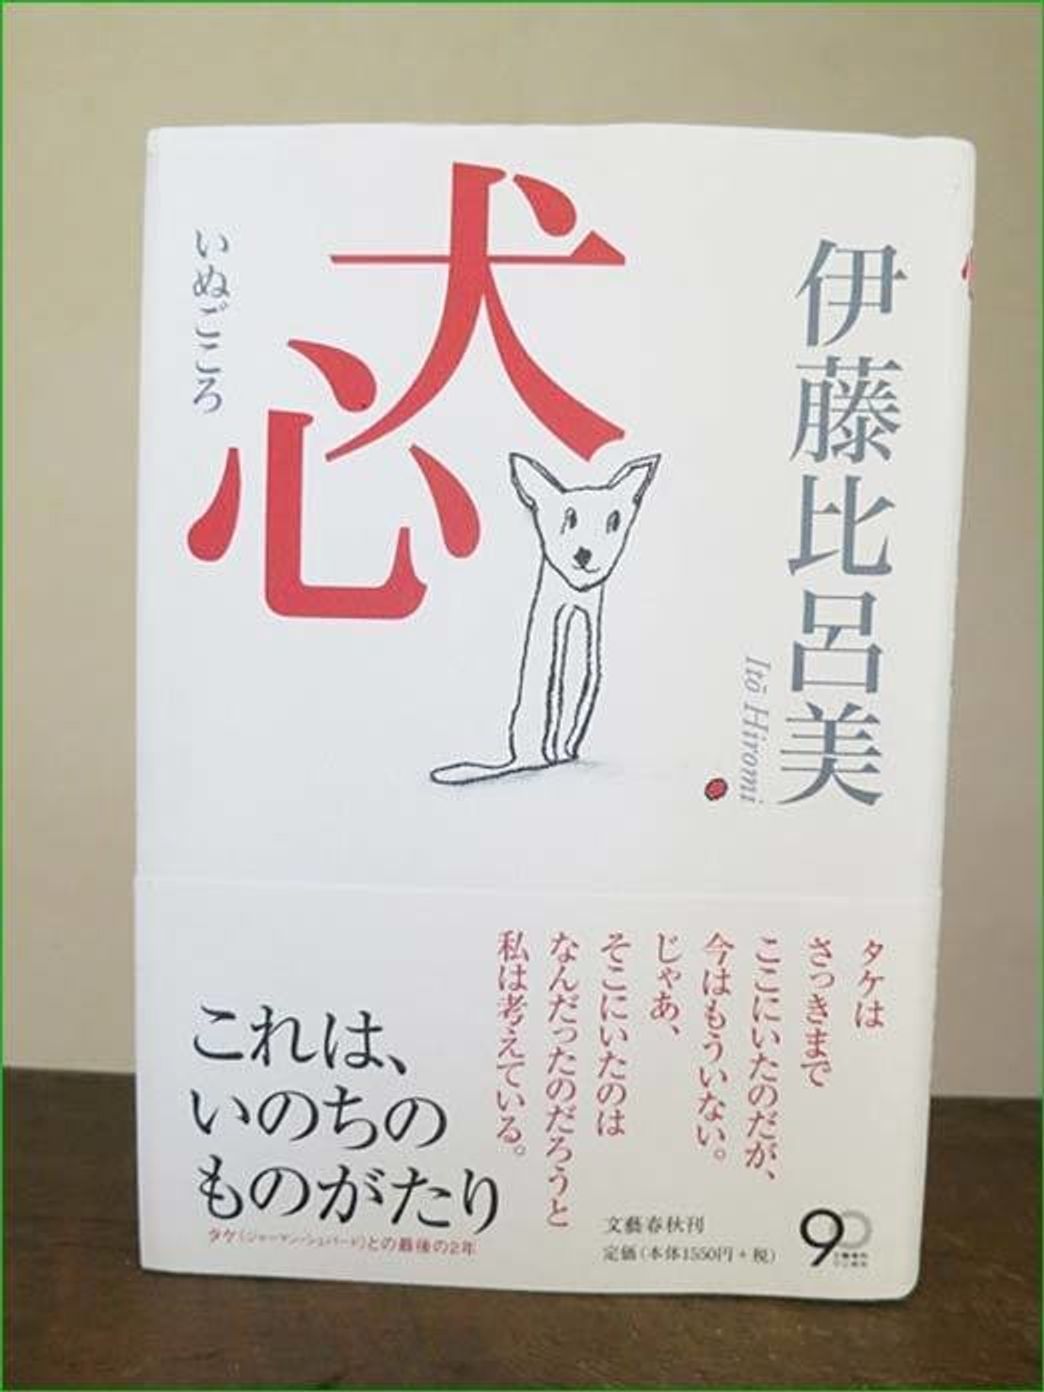 伊藤比呂美
Itō Hiromi
犬心
いぬごころ
タケは
さっきまで
ここにいたのだが、
今はもういない。
じゃあ、
そこにいたのは
なんだったのだろうと
私は考えている。
これは、
いのちの
ものがたり
タケ（ジャーマン・シェパード）との最後の2年
文藝春秋刊
定価（本体1550円+税）
90